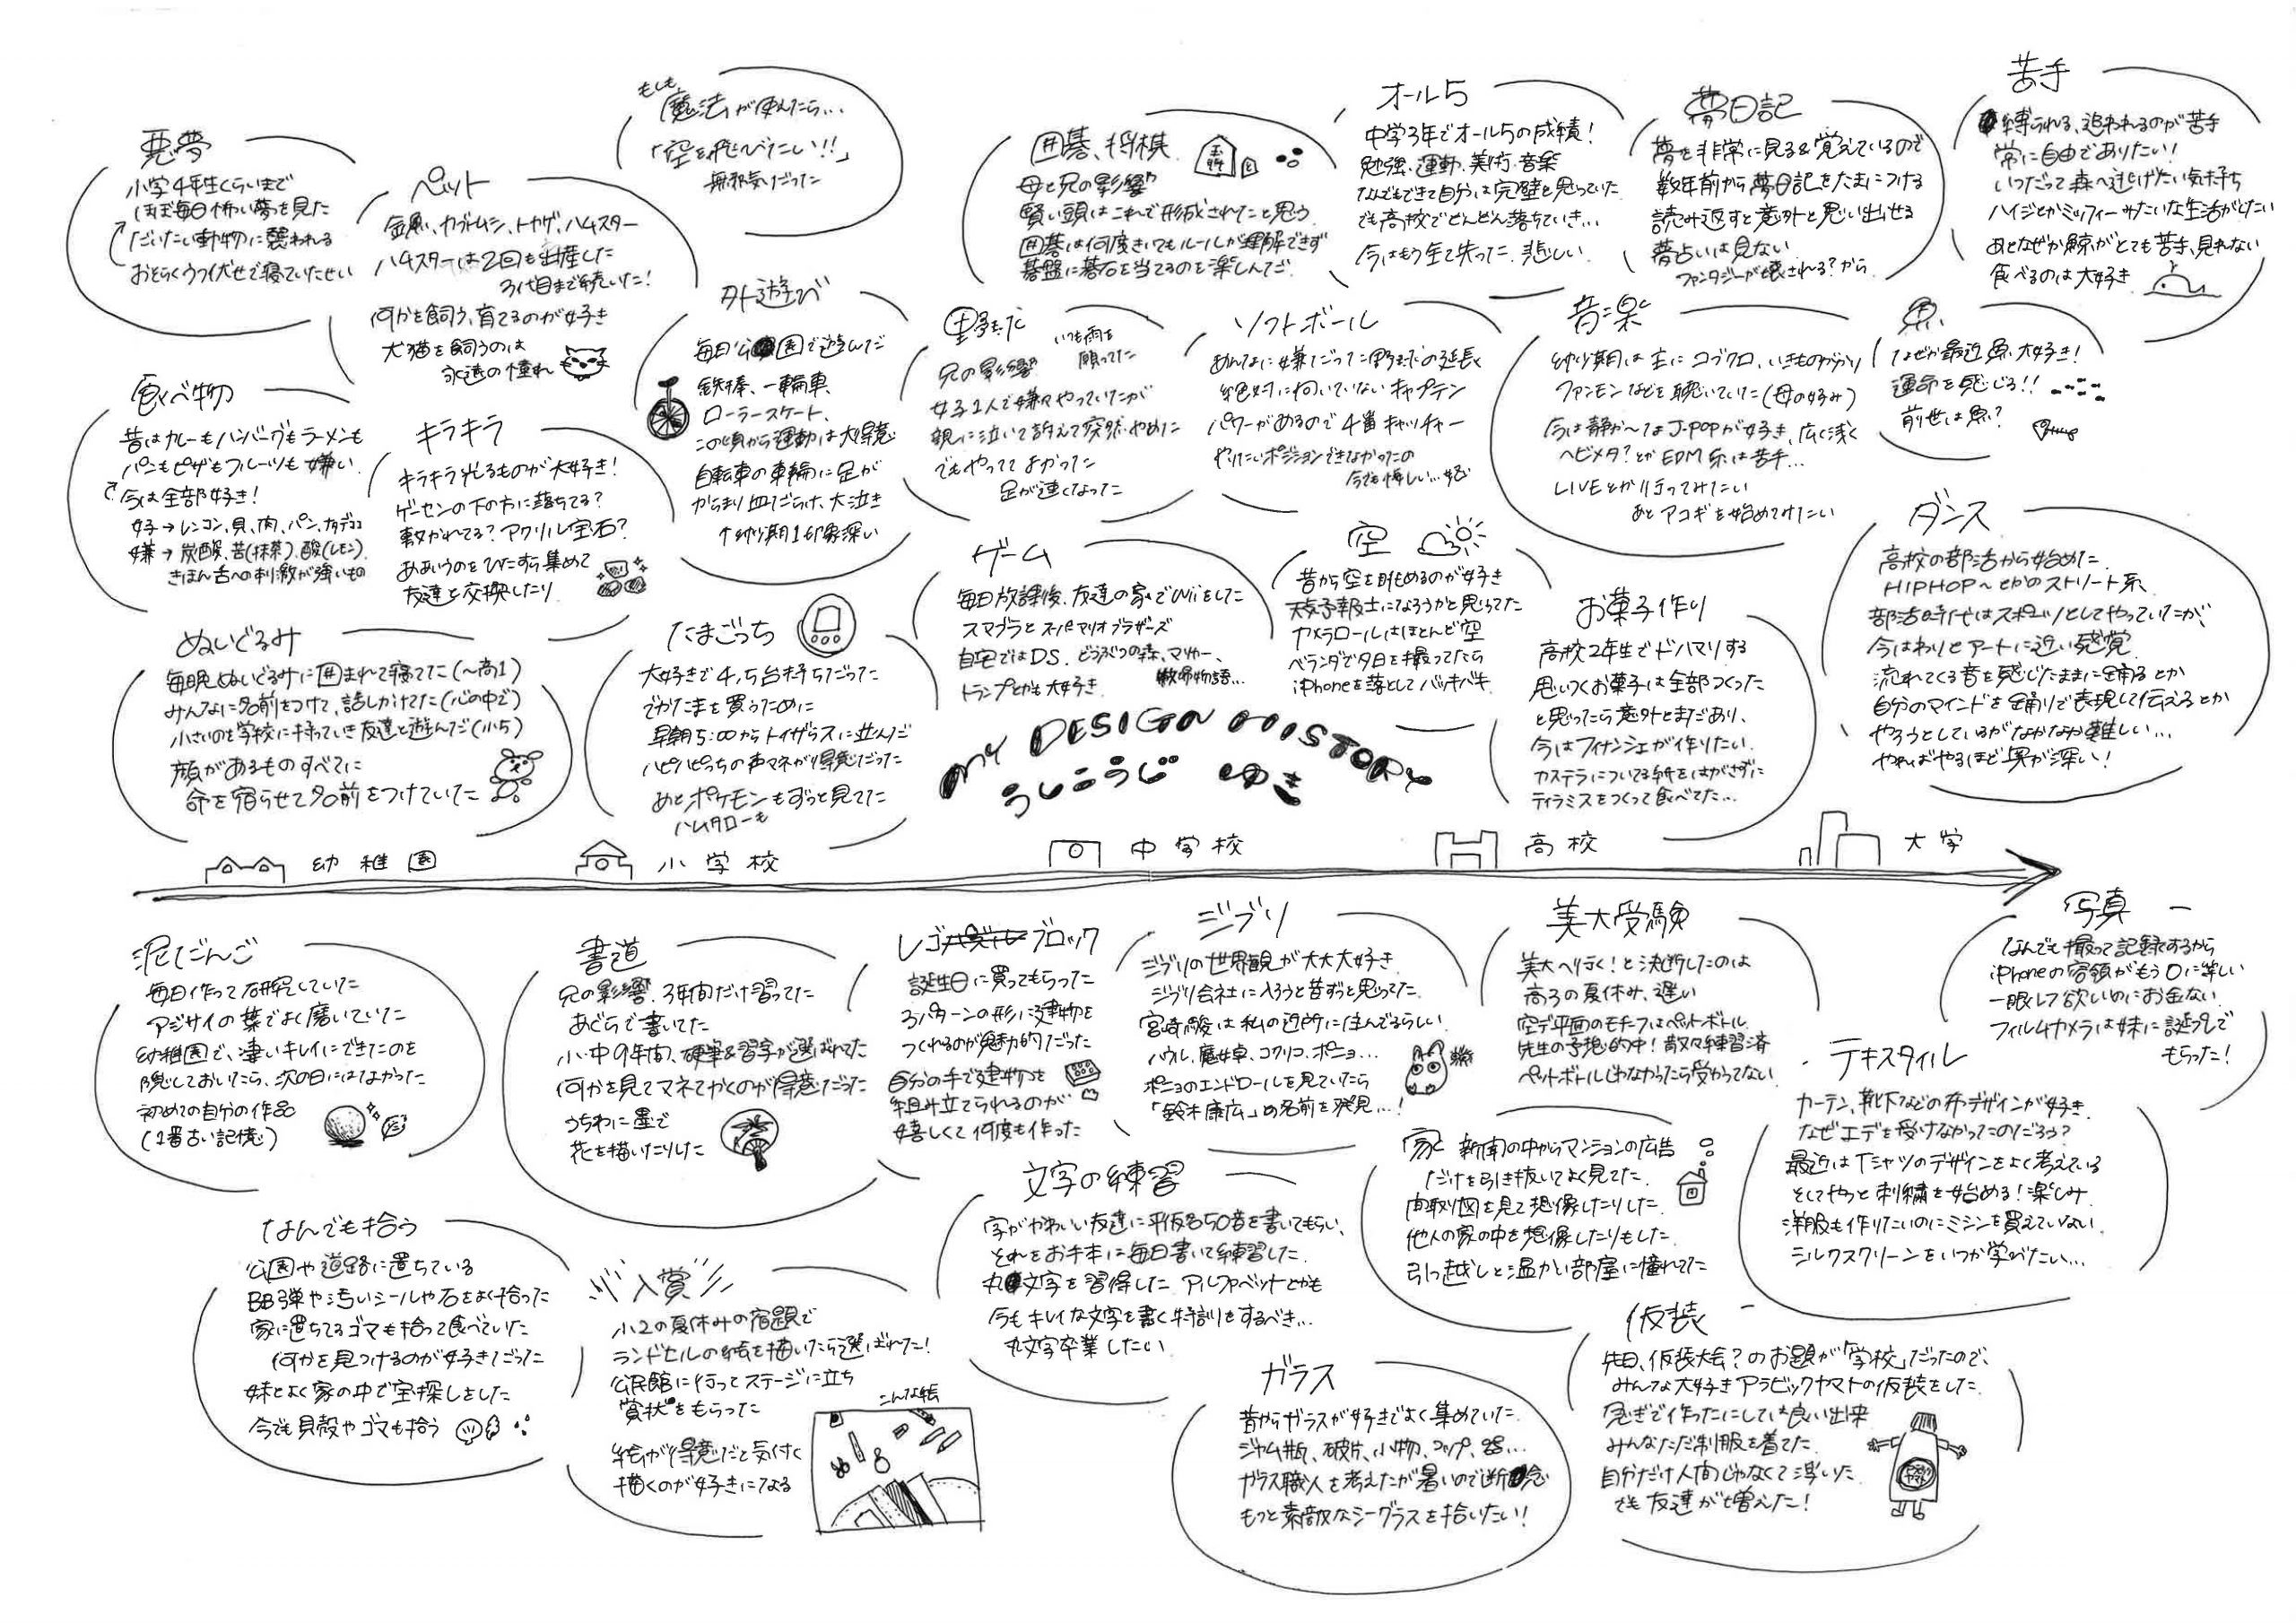 悪夢
小学4年生くらいまで
ほぼ毎日怖い夢を見た
だいたい動物に襲われる
おそらくうつ伏せで寝ていたせい
ペット
金魚、カブトムシ、トカゲ、ハムスター
ハムスターは2回も出産した
3代目まで続いた!
何かを飼う、育てるのが好き
犬猫を飼うのは
永遠の憧れ
もしも
魔法が使えたら…
「空を飛びたい!!」
無邪気だった
食べ物
昔はカレーもハンバーグもラーメンも
パンもピザもフルーツも嫌い
今は全部好き!
好き→レンコン、貝、肉、パン、カヌチョコ
嫌→炭酸、苦(抹茶)、酸(レモン)
きほん舌への刺激が強いもの
キラキラ
キラキラ光るものが大好き!
ゲーセンの下の方に落ちてる?
敷かれてる?アクリル宝石?
ああいうのをひたすら集めて
友達と交換したり
外遊び
毎日公園で遊んだ
鉄棒、一輪車、
ローラースケート、
この頃から運動は大得意
自転車の車輪に足が
からまり血だらけ、大泣き
↑幼少期1印象深い
ぬいぐるみ
毎晩ぬいぐるみに囲まれて寝てた(〜高1)
みんなに名前をつけて、話しかけてた(心の中で)
小さいのを学校に持っていき友達と遊んだ(小5)
顔があるものすべてに
命を宿らせて名前をつけていた
たまごっち
大好きで4,5台持ちだった
でかたまを買うために
早朝5:00からトイザラスに並んだ
ハピハピっちの声マネが得意だった
あとポケモンもずっと見てた
ハムタローも
囲碁、将棋
母と兄の影響
賢い頭はこれで形成されたと思う
囲碁は何度きいてもルールが理解できず
碁盤に碁石を当てるのを楽しんだ
オール5
中学3年でオール5の成績!
勉強、運動、美術、音楽
なんでもできて自分は完璧と思っていた
でも高校でどんどん落ちていき…
今はもう全て失った 悲しい
夢日記
夢を非常に見る&覚えているので
数年前から夢日記をたまにつける
読み返すと意外と思い出せる
夢占いは見ない
ファンタジーが壊される?から
苦手
縛られる、追われるのが苦手
常に自由でありたい!
いつだって森へ逃げたい気持ち
ハイジとかミッフィーみたいな生活がしたい
あとなぜか鯨がとても苦手、見れない
食べるのは大好き
野球
いつも雨を
願ってた
兄の影響
女子1人で嫌々やっていたが
親に泣いて訴えて突然やめた
でもやっててよかった
足が速くなった
ソフトボール
あんなに嫌だった野球の延長
絶対に向いていないキャプテン
パワーがあるので4番キャッチャー
やりたいポジションできなかったの
今でも悔しい…
音楽
幼少期は主にコブクロ、いきものがかり
ファンモンなどを聴いていた(母の好み)
今は静か〜なJ-POPが好き、広く浅く
ヘビメタ?とかEDM系は苦手…
LIVEとか行ってみたい
あとアコギを始めてみたい
魚
なぜか最近魚大好き!
運命を感じる!!
前世は魚?
ゲーム
毎日放課後、友達の家でWiiをした
スマブラとスーパーマリオブラザーズ
自宅ではDS、どうぶつの森、マリカー、
牧場物語…
トランプとかも大好き
空
昔から空を眺めるのが好き
天気予報士になろうかと思ってた
カメラロールはほとんど空
ベランダで夕日を撮ってたら
iPhoneを落としてバッキバキ
お菓子作り
高校2年生でドハマりする
思いつくお菓子は全部つくった
と思ったら意外とまだあり、
今はフィナンシェが作りたい
カステラについてる紙をはがさずに
ティラミスをつくって食べてた…
ダンス
高校の部活から始めた
HIPHOP〜とかのストリート系
部活時代はスポーツとしてやっていたが、
今はわりとアートに近い感覚
流れてくる音を感じたままに踊るとか
自分のマインドを踊りで表現して伝えるとか
やろうとしているがなかなか難しい…
やればやるほど奥が深い!
MY DESIGN HISTORY
うしこうじ ゆき
幼稚園
小学校
中学校
高校
大学
泥だんご
毎日作って研究していた
アジサイの葉でよく磨いていた
幼稚園で、凄いキレイにできたのを
隠しておいたら、次の日にはなかった
初めての自分の作品
(1番古い記憶)
書道
兄の影響、3年間だけ習ってた
あぐらで書いてた
小中9年間、硬筆&習字が選ばれてた
何かを見てマネてかくのが得意だった
うちわに墨で
花を描いたりした
レゴブロック
誕生日に買ってもらった
3パターンの形に建物を
つくれるのが魅力的だった
自分の手で建物を
組み立てられるのが
嬉しくて何度も作った
ジブリ
ジブリの世界観が大大大好き
ジブリ会社に入ろうと昔ずっと思ってた
宮崎駿は私の近所に住んでるらしい
ハウル、魔女宅、コクリコ、ポニョ…
ポニョのエンドロールを見ていたら
「鈴木康広」の名前を発見…!
美大受験
美大へ行く!と決断したのは
高3の夏休み、遅い
空デ平面のモチーフはペットボトル
先生の予想的中!散々練習済
ペットボトルじゃなかったら受かってない
写真
なんでも撮って記録するから
iPhoneの容量がもう0に等しい
一眼レフ欲しいのにお金ない
フィルムカメラは妹に誕プレで
もらった!
テキスタイル
カーテン、靴下などの布デザインが好き
なぜエデを受けなかったのだろう?
最近はTシャツのデザインをよく考えている
そしてやっと刺繍を始める!楽しみ
洋服も作りたいのにミシンを買えていない
シルクスクリーンをいつか学びたい…
家
新聞の中からマンションの広告
だけを引き抜いてよく見てた
間取り図を見て想像したりした
他人の家の中を想像したりもした
引っ越しと温かい部屋に憧れてた
なんでも拾う
公園や道路に落ちている
BB弾や汚いシールや石をよく拾った
家に落ちてるゴマも拾って食べていた
何かを見つけるのが好きだった
妹とよく家の中で宝探しをした
今でも貝殻やゴマも拾う
入賞
小2の夏休みの宿題で
ランドセルの絵を描いたら選ばれた!
公民館に行ってステージに立ち
賞状をもらった
こんな絵
絵が得意だと気付く
描くのが好きになる
文字の練習
字がかわいい友達に平仮名50音を書いてもらい、
それをお手本に毎日書いて練習した
丸文字を習得した アルファベットとかも
今もキレイな文字を書く特訓をするべき…
丸文字卒業したい
ガラス
昔からガラスが好きでよく集めていた
ジャム瓶、破片、小物、コップ、器…
ガラス職人を考えたが暑いので断念
もっと素敵なシーグラスを拾いたい!
仮装
先日、仮装大会?のお題が「学校」だったので、
みんな大好きアラビックヤマトの仮装をした
急ぎで作ったにしては良い出来
みんなただ制服を着てた
自分だけ人間じゃなくて浮いた
でも友達が増えた!